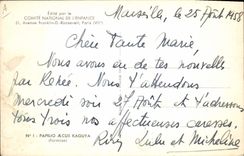 Édité par le
COMITÉ NATIONAL DE L'ENFANCE
51, Avenue Franklin-D.-Roosevelt, Paris (VIIIe)
Marseille, le 25 Août 1958
Chère Tante Marie,
Nous avons eu de tes nouvelles
par Renée. Nous t'attendons
mercredi soir 27 Août et t'adressons
tous trois nos affectueuses caresses.
Lulu et Micheline
N° 1 - PAPILIO